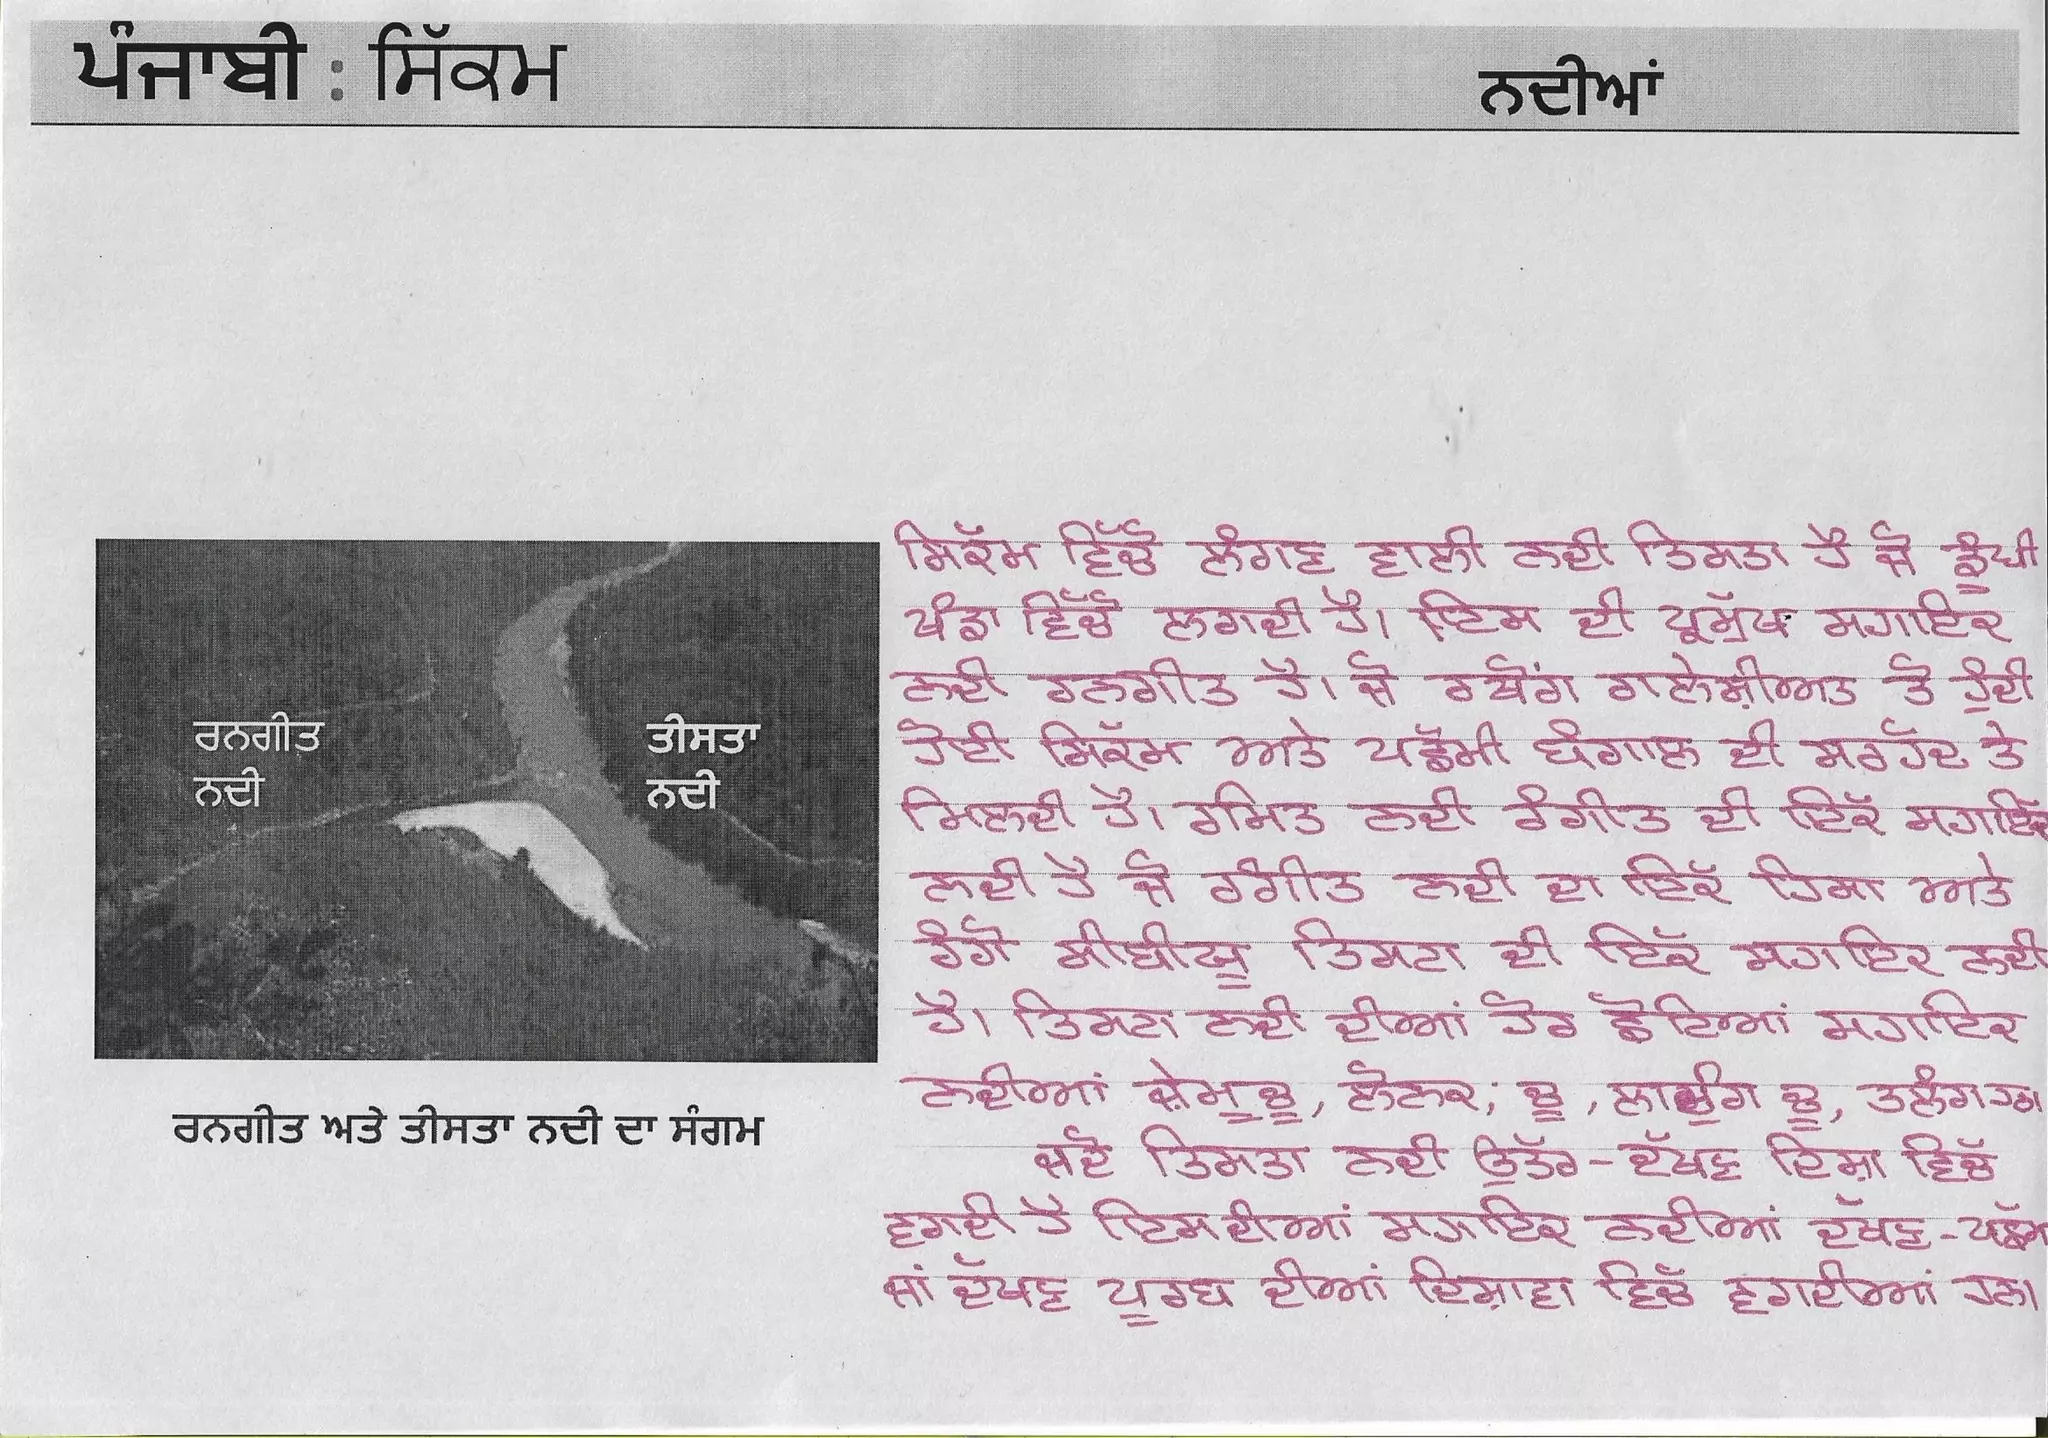 ਪੰਜਾਬੀ : ਸਿੱਕਮ
ਨਦੀਆਂ
ਰਨਗੀਤ
ਨਦੀ
ਤੀਸਤਾ
ਨਦੀ
ਰਨਗੀਤ ਅਤੇ ਤੀਸਤਾ ਨਦੀ ਦਾ ਸੰਗਮ
ਸਿਕੱਮ ਵਿੱਚੋ ਲੰਗਣ ਵਾਲੀ ਨਦੀ ਤਿਸਤਾ ਹੈ ਜੋ ਡੂੰਘੀ
ਖੰਡਾ ਵਿੱਚੋ ਲਗਦੀ ਹੈ। ਇਸ ਦੀ ਪ੍ਰਮੁੱਖ ਸਹਾਇਕ
ਨਦੀ ਰਨਗੀਤ ਹੈ। ਜੋ ਰਥੋਂਗ ਗਲੇਸ਼ੀਅਤ ਤੋ ਹੁੰਦੀ
ਹੋਈ ਸਿਕੱਮ ਅਤੇ ਪਛੱਮੀ ਬੰਗਾਲ ਦੀ ਸਰਹੱਦ ਤੇ
ਮਿਲਦੀ ਹੈ। ਰਮਿਤ ਨਦੀ ਰੰਗੀਤ ਦੀ ਇਕੱ ਸਹਾਇਕ
ਨਦੀ ਹੈ ਜੋ ਰੰਗੀਤ ਨਦੀ ਦਾ ਇਕੱ ਹਿਸਾ ਅਤੇ
ਰੰਗੋ ਤਿਸਟਾ ਦੀ ਇਕੱ ਸਹਾਇਕ ਨਦੀ
ਹੈ। ਤਿਸਟਾ ਨਦੀ ਦੀਆਂ ਹੋਰ ਛੋਟਿਆਂ ਸਹਾਇਕ
ਨਦੀਆਂ ਜ਼ੇਮੂ ਚੂ, ਲੋਨਕ, ਚੂ, ਚੂ, ਤਲੰਗ
ਜਦੋ ਤਿਸਤਾ ਨਦੀ ਉਤੱਰ-ਦੱਖਣ ਦਿਸ਼ਾ ਵਿਚੱ
ਵਗਦੀ ਹੈ ਇਸਦੀਆਂ ਸਹਾਇਕ ਨਦੀਆਂ ਦੱਖਣ-ਪਛੱਮ
ਜਾਂ ਦੱਖਣ ਪੂਰਬ ਦੀਆਂ ਦਿਸ਼ਾਵਾ ਵਿਚੱ ਵਗਦੀਆਂ ਹਨ।